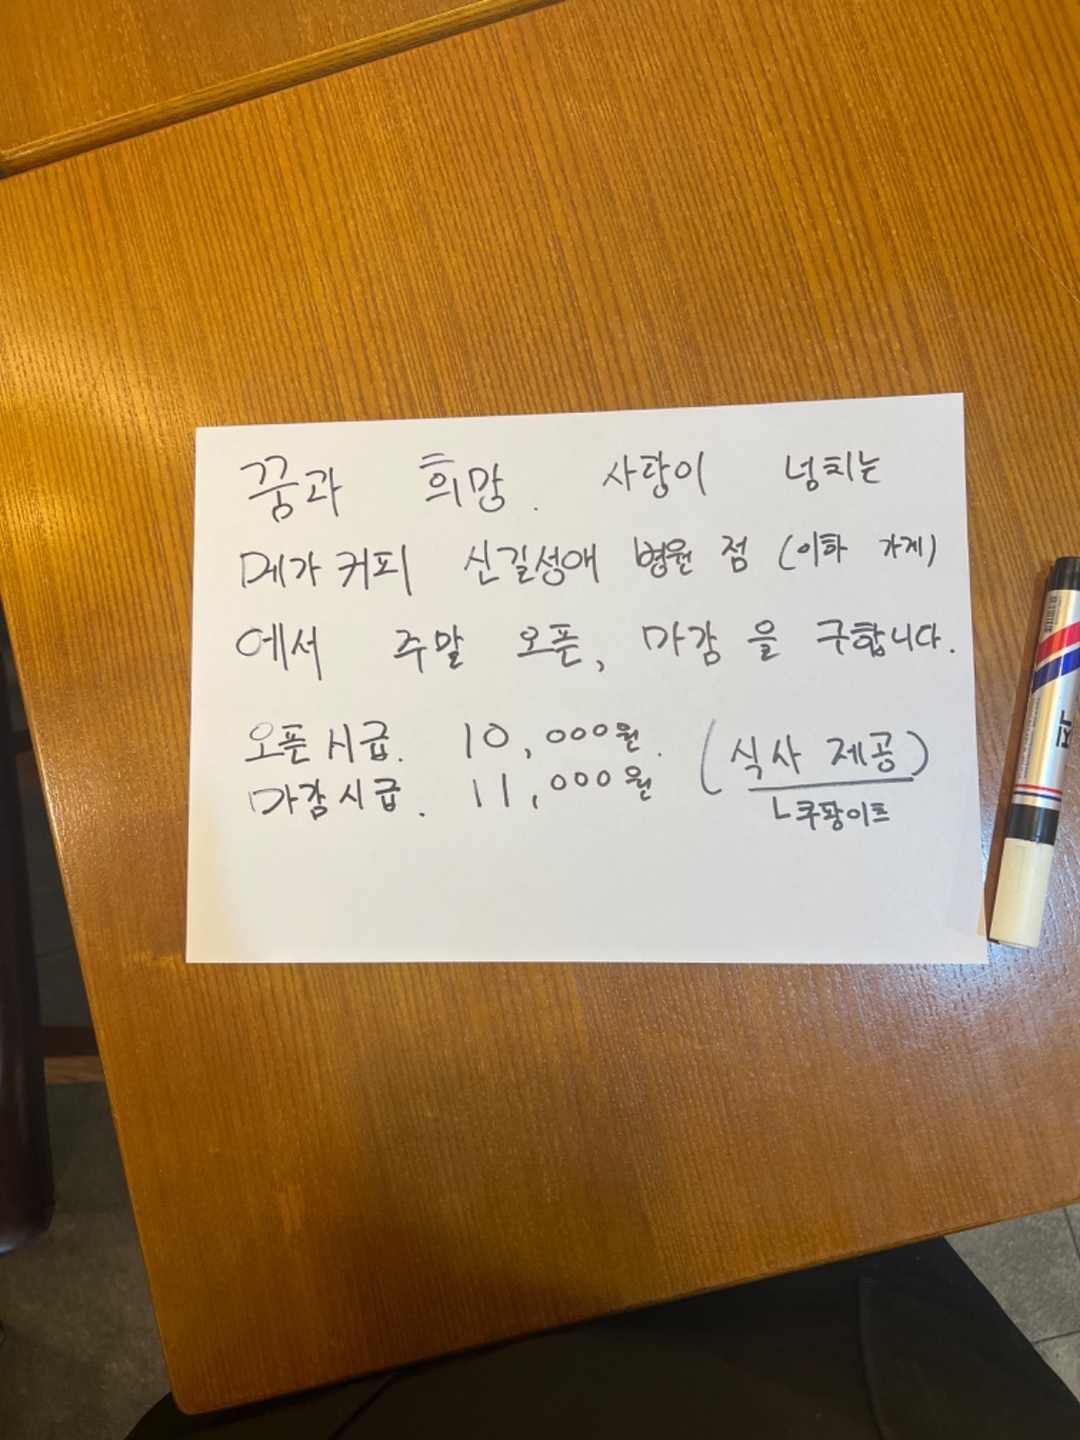 꿈과 희망. 사랑이 넘치는
메가커피 신길성애 병원 점 (이하 가게)
에서 주말 오픈, 마감을 구합니다.
오픈시급. 10,000원. (식사 제공)
마감시급. 11,000원
ㄴ쿠팡이츠